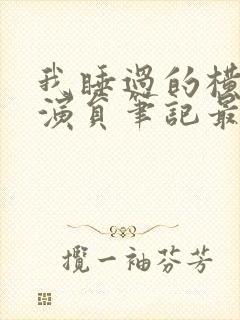 我睡過的橫
演員筆記最
攬一袖芬芳